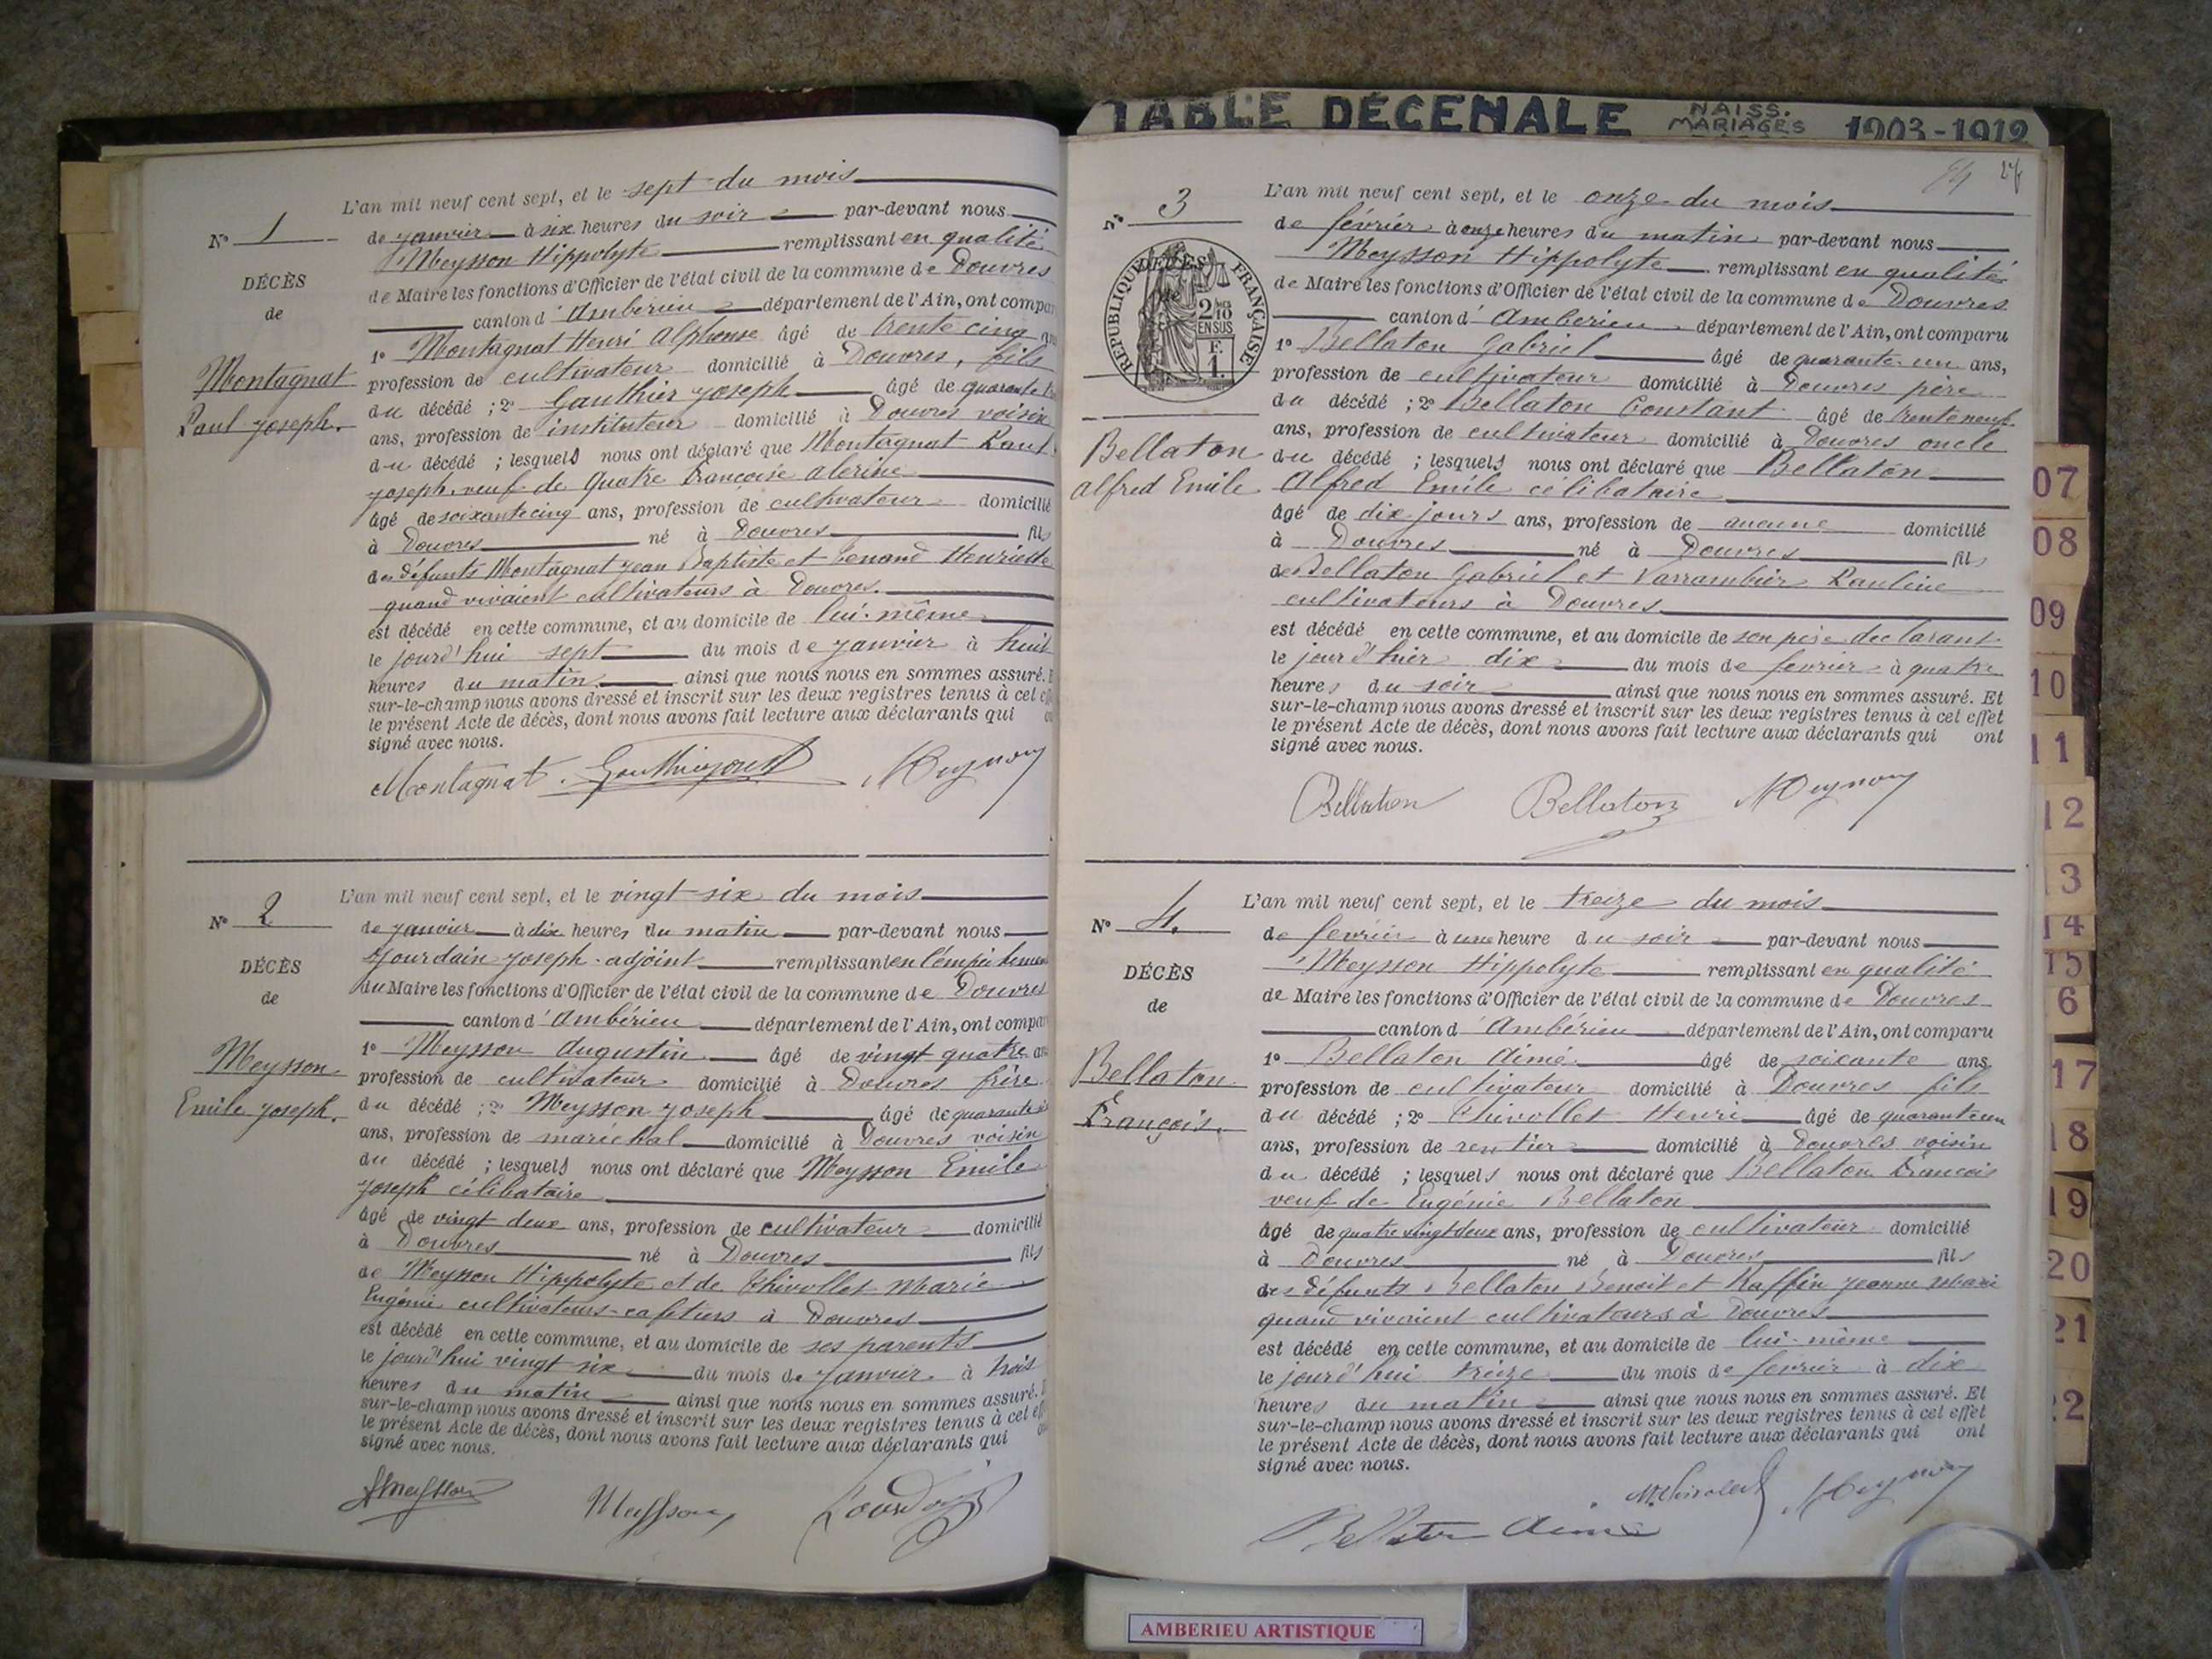 TABLE DÉCENALE NAISS. MARIAGES 1903-1912
N° 1
DÉCÈS
de
Montagnat
Paul Joseph.
L'an mil neuf cent sept, et le sept du mois
de janvier à six heures du soir par-devant nous
Meysson Hippolyte remplissant en qualité
de Maire les fonctions d'Officier de l'état civil de la commune de Douvres
canton d'Ambérieu département de l'Ain, ont compa
1° Montagnat Henri Alphonse âgé de trente cinq an
profession de cultivateur domicilié à Douvres, fils
du décédé ; 2° Gauthier Joseph âgé de quarante
ans, profession de instituteur domicilié à Douvres voisin
du décédé ; lesquels nous ont déclaré que Montagnat Paul
Joseph, veuf de Quatre Françoise
âgé de soixante cinq ans, profession de cultivateur domicilié
à Douvres né à Douvres fils
des défunts Montagnat Jean Baptiste et Henriette
quand vivaient cultivateurs à Douvres.
est décédé en cette commune, et au domicile de lui-même
le jourd'hui sept du mois de janvier à huit
heures du matin ainsi que nous nous en sommes assuré.
sur-le-champ nous avons dressé et inscrit sur les deux registres tenus à cet eff
le présent Acte de décès, dont nous avons fait lecture aux déclarants qui
signé avec nous.
Montagnat.
N° 2
DÉCÈS
de
Meysson
Emile Joseph.
L'an mil neuf cent sept, et le vingt-six du mois
de janvier à dix heures du matin par-devant nous
Jourdain Joseph adjoint remplissant en l'empêchement
du Maire les fonctions d'Officier de l'état civil de la commune de Douvres
canton d'Ambérieu département de l'Ain, ont compa
1° Meysson Augustin âgé de vingt quatre an
profession de cultivateur domicilié à Douvres frère
du décédé ; 2° Meysson Joseph âgé de quarante
ans, profession de maréchal domicilié à Douvres voisin
du décédé ; lesquels nous ont déclaré que Meysson Emile
Joseph célibataire
âgé de vingt deux ans, profession de cultivateur domicilié
à Douvres né à Douvres fils
de Meysson Hippolyte et de Thivollet Marie
Eugénie cultivateurs-cafetiers à Douvres
est décédé en cette commune, et au domicile de ses parents
le jourd'hui vingt six du mois de janvier à trois
heures du matin ainsi que nous nous en sommes assuré.
sur-le-champ nous avons dressé et inscrit sur les deux registres tenus à cet eff
le présent Acte de décès, dont nous avons fait lecture aux déclarants qui
signé avec nous.
N° 3
RÉPUBLIQUE FRANÇAISE
2/10 EN SUS
F. 1.
Bellaton
Alfred Emile
L'an mil neuf cent sept, et le onze du mois
de février à onze heures du matin par-devant nous
Meysson Hippolyte remplissant en qualité
de Maire les fonctions d'Officier de l'état civil de la commune de Douvres
canton d'Ambérieu département de l'Ain, ont comparu
1° Bellaton Gabriel âgé de quarante un ans,
profession de cultivateur domicilié à Douvres père
du décédé ; 2° Bellaton Constant âgé de trente neuf
ans, profession de cultivateur domicilié à Douvres oncle
du décédé ; lesquels nous ont déclaré que Bellaton
Alfred Emile célibataire
âgé de dix jours ans, profession de aucune domicilié
à Douvres né à Douvres fils
de Bellaton Gabriel et Varrambier Pauline
cultivateurs à Douvres
est décédé en cette commune, et au domicile de son père déclarant
le jour d'hier dix du mois de février à quatre
heures du soir ainsi que nous nous en sommes assuré. Et
sur-le-champ nous avons dressé et inscrit sur les deux registres tenus à cet effet
le présent Acte de décès, dont nous avons fait lecture aux déclarants qui ont
signé avec nous.
Bellaton Bellaton
N° 4.
DÉCÈS
de
Bellaton
François.
L'an mil neuf cent sept, et le treize du mois
de février à une heure du soir par-devant nous
Meysson Hippolyte remplissant en qualité
de Maire les fonctions d'Officier de l'état civil de la commune de Douvres
canton d'Ambérieu département de l'Ain, ont comparu
1° Bellaton Aimé âgé de soixante ans
profession de cultivateur domicilié à Douvres fils
du décédé ; 2° Thivollet Henri âgé de quarante un
ans, profession de rentier domicilié à Douvres voisin
du décédé ; lesquels nous ont déclaré que Bellaton François
veuf de Eugénie Bellaton
âgé de quatre vingt deux ans, profession de cultivateur domicilié
à Douvres né à Douvres fils
des défunts Bellaton Benoit et Raffin Jeanne Marie
quand vivaient cultivateurs à Douvres
est décédé en cette commune, et au domicile de lui-même
le jourd'hui treize du mois de février à dix
heures du matin ainsi que nous nous en sommes assuré. Et
sur-le-champ nous avons dressé et inscrit sur les deux registres tenus à cet effet
le présent Acte de décès, dont nous avons fait lecture aux déclarants qui ont
signé avec nous.
Bellaton Aimé
07
08
09
10
11
12
13
14
15
6
17
18
19
20
21
22
AMBERIEU ARTISTIQUE